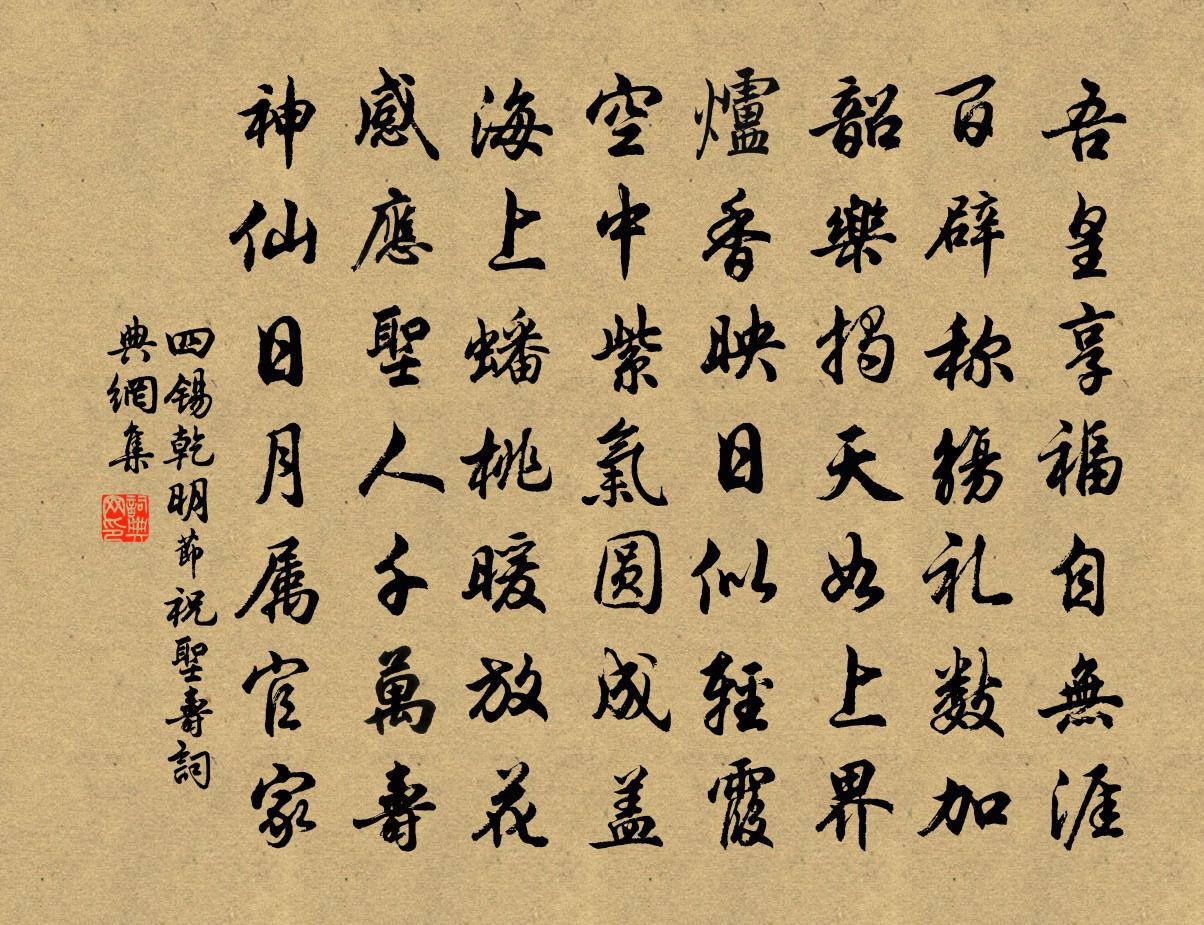 吾皇享福自無涯
百辟称觞礼数加
韶樂揭天如上界
爐香映日似輕霞
空中紫氣圓成盖
海上蟠桃暖放花
感應聖人千萬壽
神仙日月属官家
四锡乾明節祝聖壽詞
典網集
詞典网印